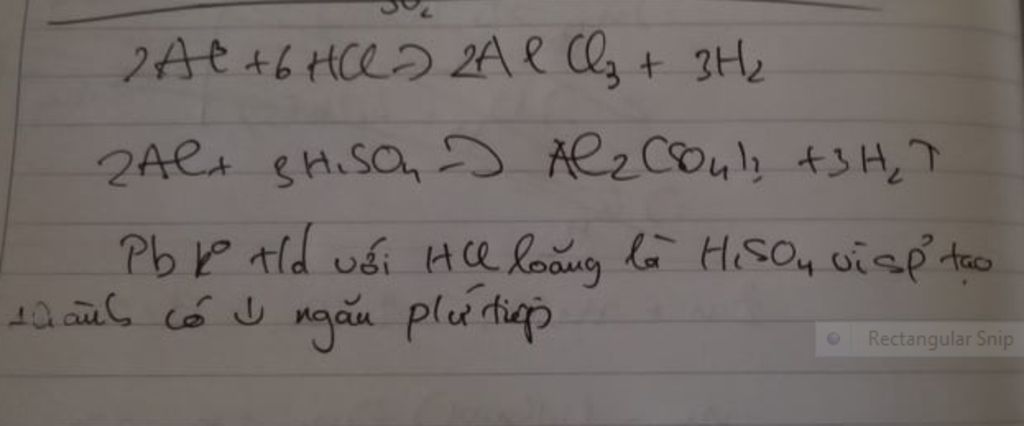 SO₂
2Al + 6HCl => 2AlCl₃ + 3H₂
2Al + 3H₂SO₄ => Al₂(SO₄)₃ + 3H₂↑
Pb k⁰ t/d với HCl loãng là H₂SO₄ vì sp' tạo
thành có ↓ ngăn pứ tiếp
Rectangular Snip